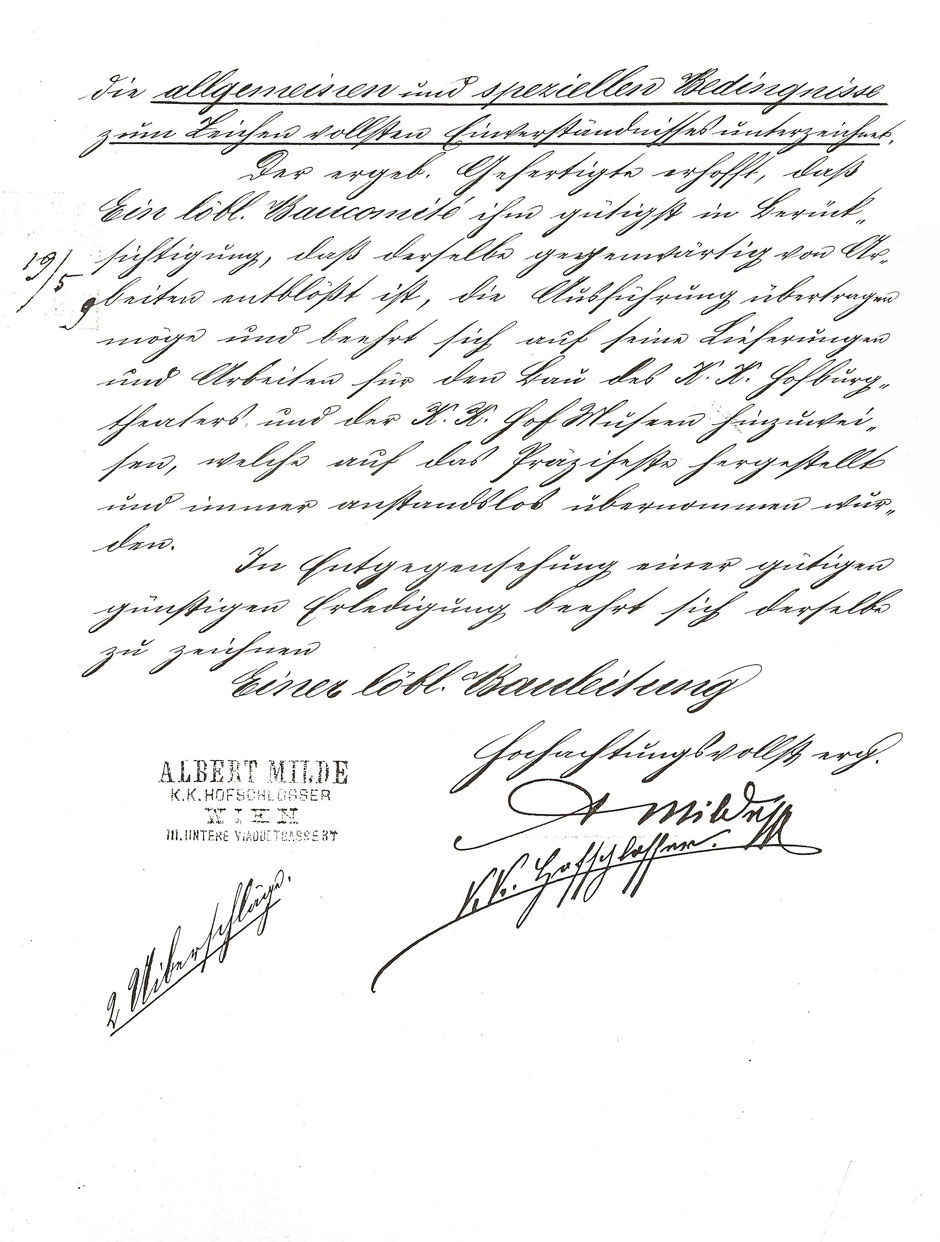 die allgemeinen und speziellen Bedingnisse
zum Zeichen vollsten Einverständnisses unterzeichnet.
Der ergeb. Gefertigte erhofft, daß
Ein löbl. Baucomité ihm gütigst in Berück-
sichtigung, daß derselbe gegenwärtig von Ar-
19/5 9
beiten entblößt ist, die Ausführung übertragen
möge und beehrt sich auf seine Lieferungen
und Arbeiten für den Bau des K. K. Hofburg-
theaters und der K. K. Hof Museen hinzuwei-
sen, welche auf das Präziseste hergestellt
und immer anstandslos übernommen wur-
den.
In Entgegensehung einer gütigen
günstigen Erledigung beehrt sich derselbe
zu zeichnen
Einer löbl. Bauleitung
Hochachtungsvollst erg.
A Milde
K.K. Hofschlosser.
ALBERT MILDE
K.K. HOFSCHLOSSER
WIEN
III. UNTERE VIADUCTGASSE 37
2 Uiberschläge.